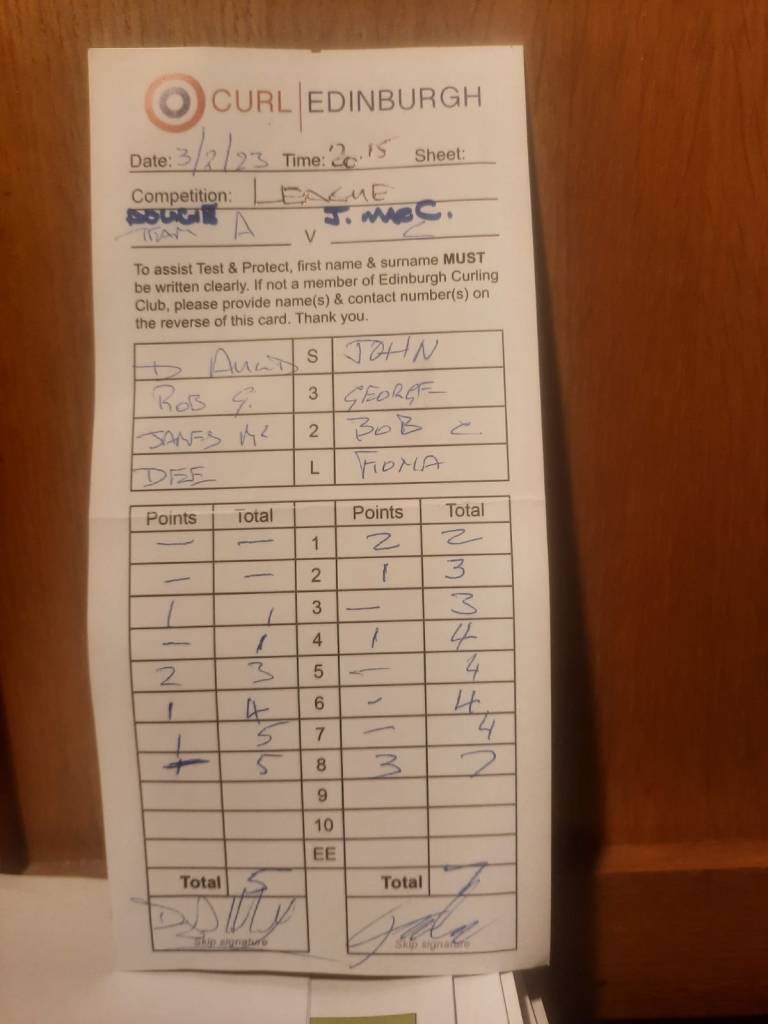 CURL | EDINBURGH
Date: 3/2/23 Time: 20.15 Sheet:
Competition: LEAGUE
DOUGIE J. MAC C.
TEAM A V C
To assist Test & Protect, first name & surname MUST
be written clearly. If not a member of Edinburgh Curling
Club, please provide name(s) & contact number(s) on
the reverse of this card. Thank you.
D S JOHN
ROB G. 3 GEORGE
JAMES Mc 2 BOB C
DEE L FIONA
Points Total Points Total
— — 1 2 2
— — 2 1 3
1 1 3 — 3
— 1 4 1 4
2 3 5 — 4
1 4 6 - 4
1 5 7 — 4
5 8 3 7
9
10
EE
Total 5 Total 7
Skip signature Skip signature